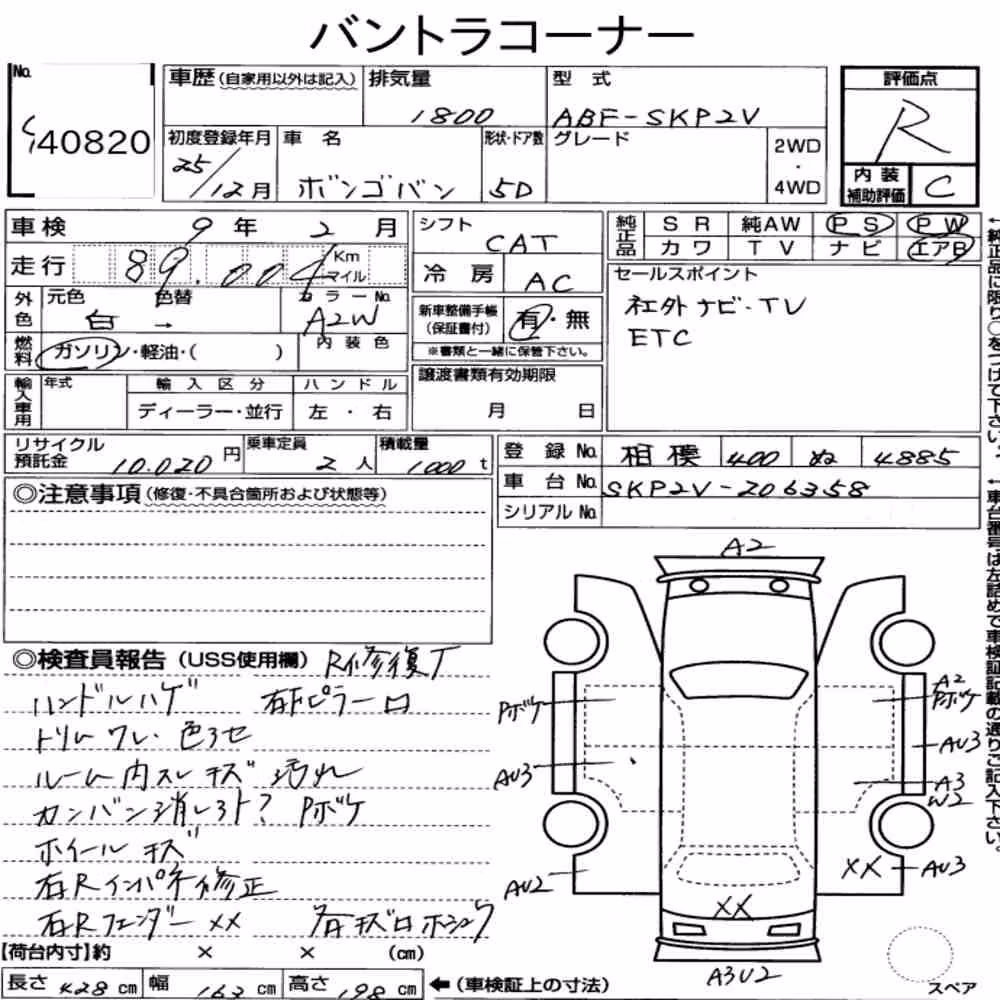 バントラコーナー
No. 40820
車歴 (自家用以外は記入)
排気量 1800
型式 ABF-SKP2V
評価点 R
初度登録年月 25/12月
車名 ボンゴバン
形状・ドア数 5D
グレード
2WD・4WD
内装補助評価 C
車検 9年 2月
シフト CAT
純正品 SR 純AW PS PW
カワ TV ナビ エアB
走行 89.004 Km マイル
冷房 AC
セールスポイント
社外ナビ・TV
ETC
外色 元色 白 → 色替
カラーNo. A2W
新車整備手帳(保証書付) 有・無
※書類と一緒に保管下さい。
燃料 ガソリン・軽油・( )
内装色
譲渡書類有効期限
月 日
輸入車用 年式 輸入区分 ハンドル
ディーラー・並行 左・右
リサイクル預託金 10.020円
乗車定員 2人
積載量 1000t
登録No. 相模 400 ぬ 4885
車台No. SKP2V-206358
シリアルNo.
◎注意事項 (修復・不具合箇所および状態等)
←純正品に限り○をつけて下さい。
←車台番号は左詰めで車検証記載の通りご記入下さい。
◎検査員報告 (USS使用欄) R修復了
ハンドルハゲ 右Fピラーロ
トリムワレ・色アセ
ルーム内スレキズ汚れ
カンバン消し跡? Pボケ
ホイールキズ
右Rインパネ修正
右Rフェンダー××
A2
Pボケ
AU3
AU2
A2
Pボケ
AU3
A3
W2
XX
AU3
XX
A3U2
【荷台内寸】約 × × (cm)
長さ 428cm 幅 163cm 高さ 198cm ←(車検証上の寸法)
スペア